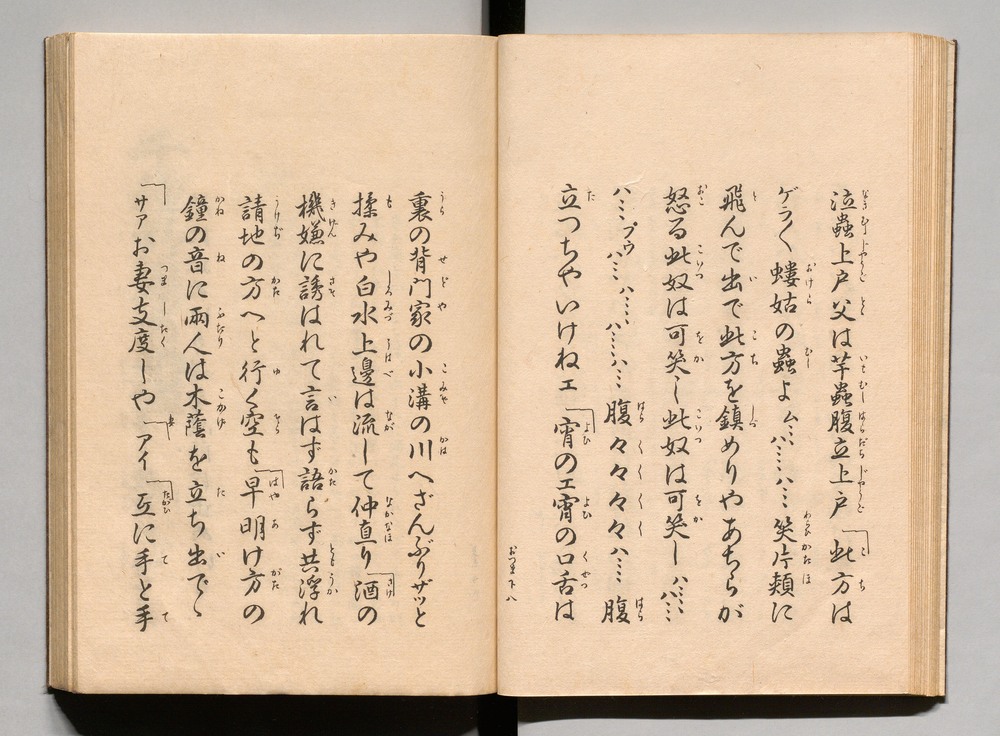 泣蟲上戸父は芋蟲腹立上戸「此方は
ゲラ〳〵螻蛄の蟲よムヽヽハヽヽヽハヽヽ笑片頬に
飛んで出で此方を鎮めりやあちらが
怒る此奴は可笑し此奴は可笑しハヽヽヽハヽヽ
ハヽヽプウハヽヽハヽヽヽハヽヽヽハヽヽ腹々々々々ハヽヽ腹
立つちやいけねエ「宵のエ宵の口舌は
おつま下ハ
裏の背門家の小溝の川へざんぶりザッと
揉みや白水上邊は流して仲直り「酒の
機嫌に誘はれて言はず語らず共浮れ
請地の方へと行く空も「早明け方の
鐘の音に兩人は木蔭を立ち出でゝ
「サアお妻支度しや「アイ「互に手と手